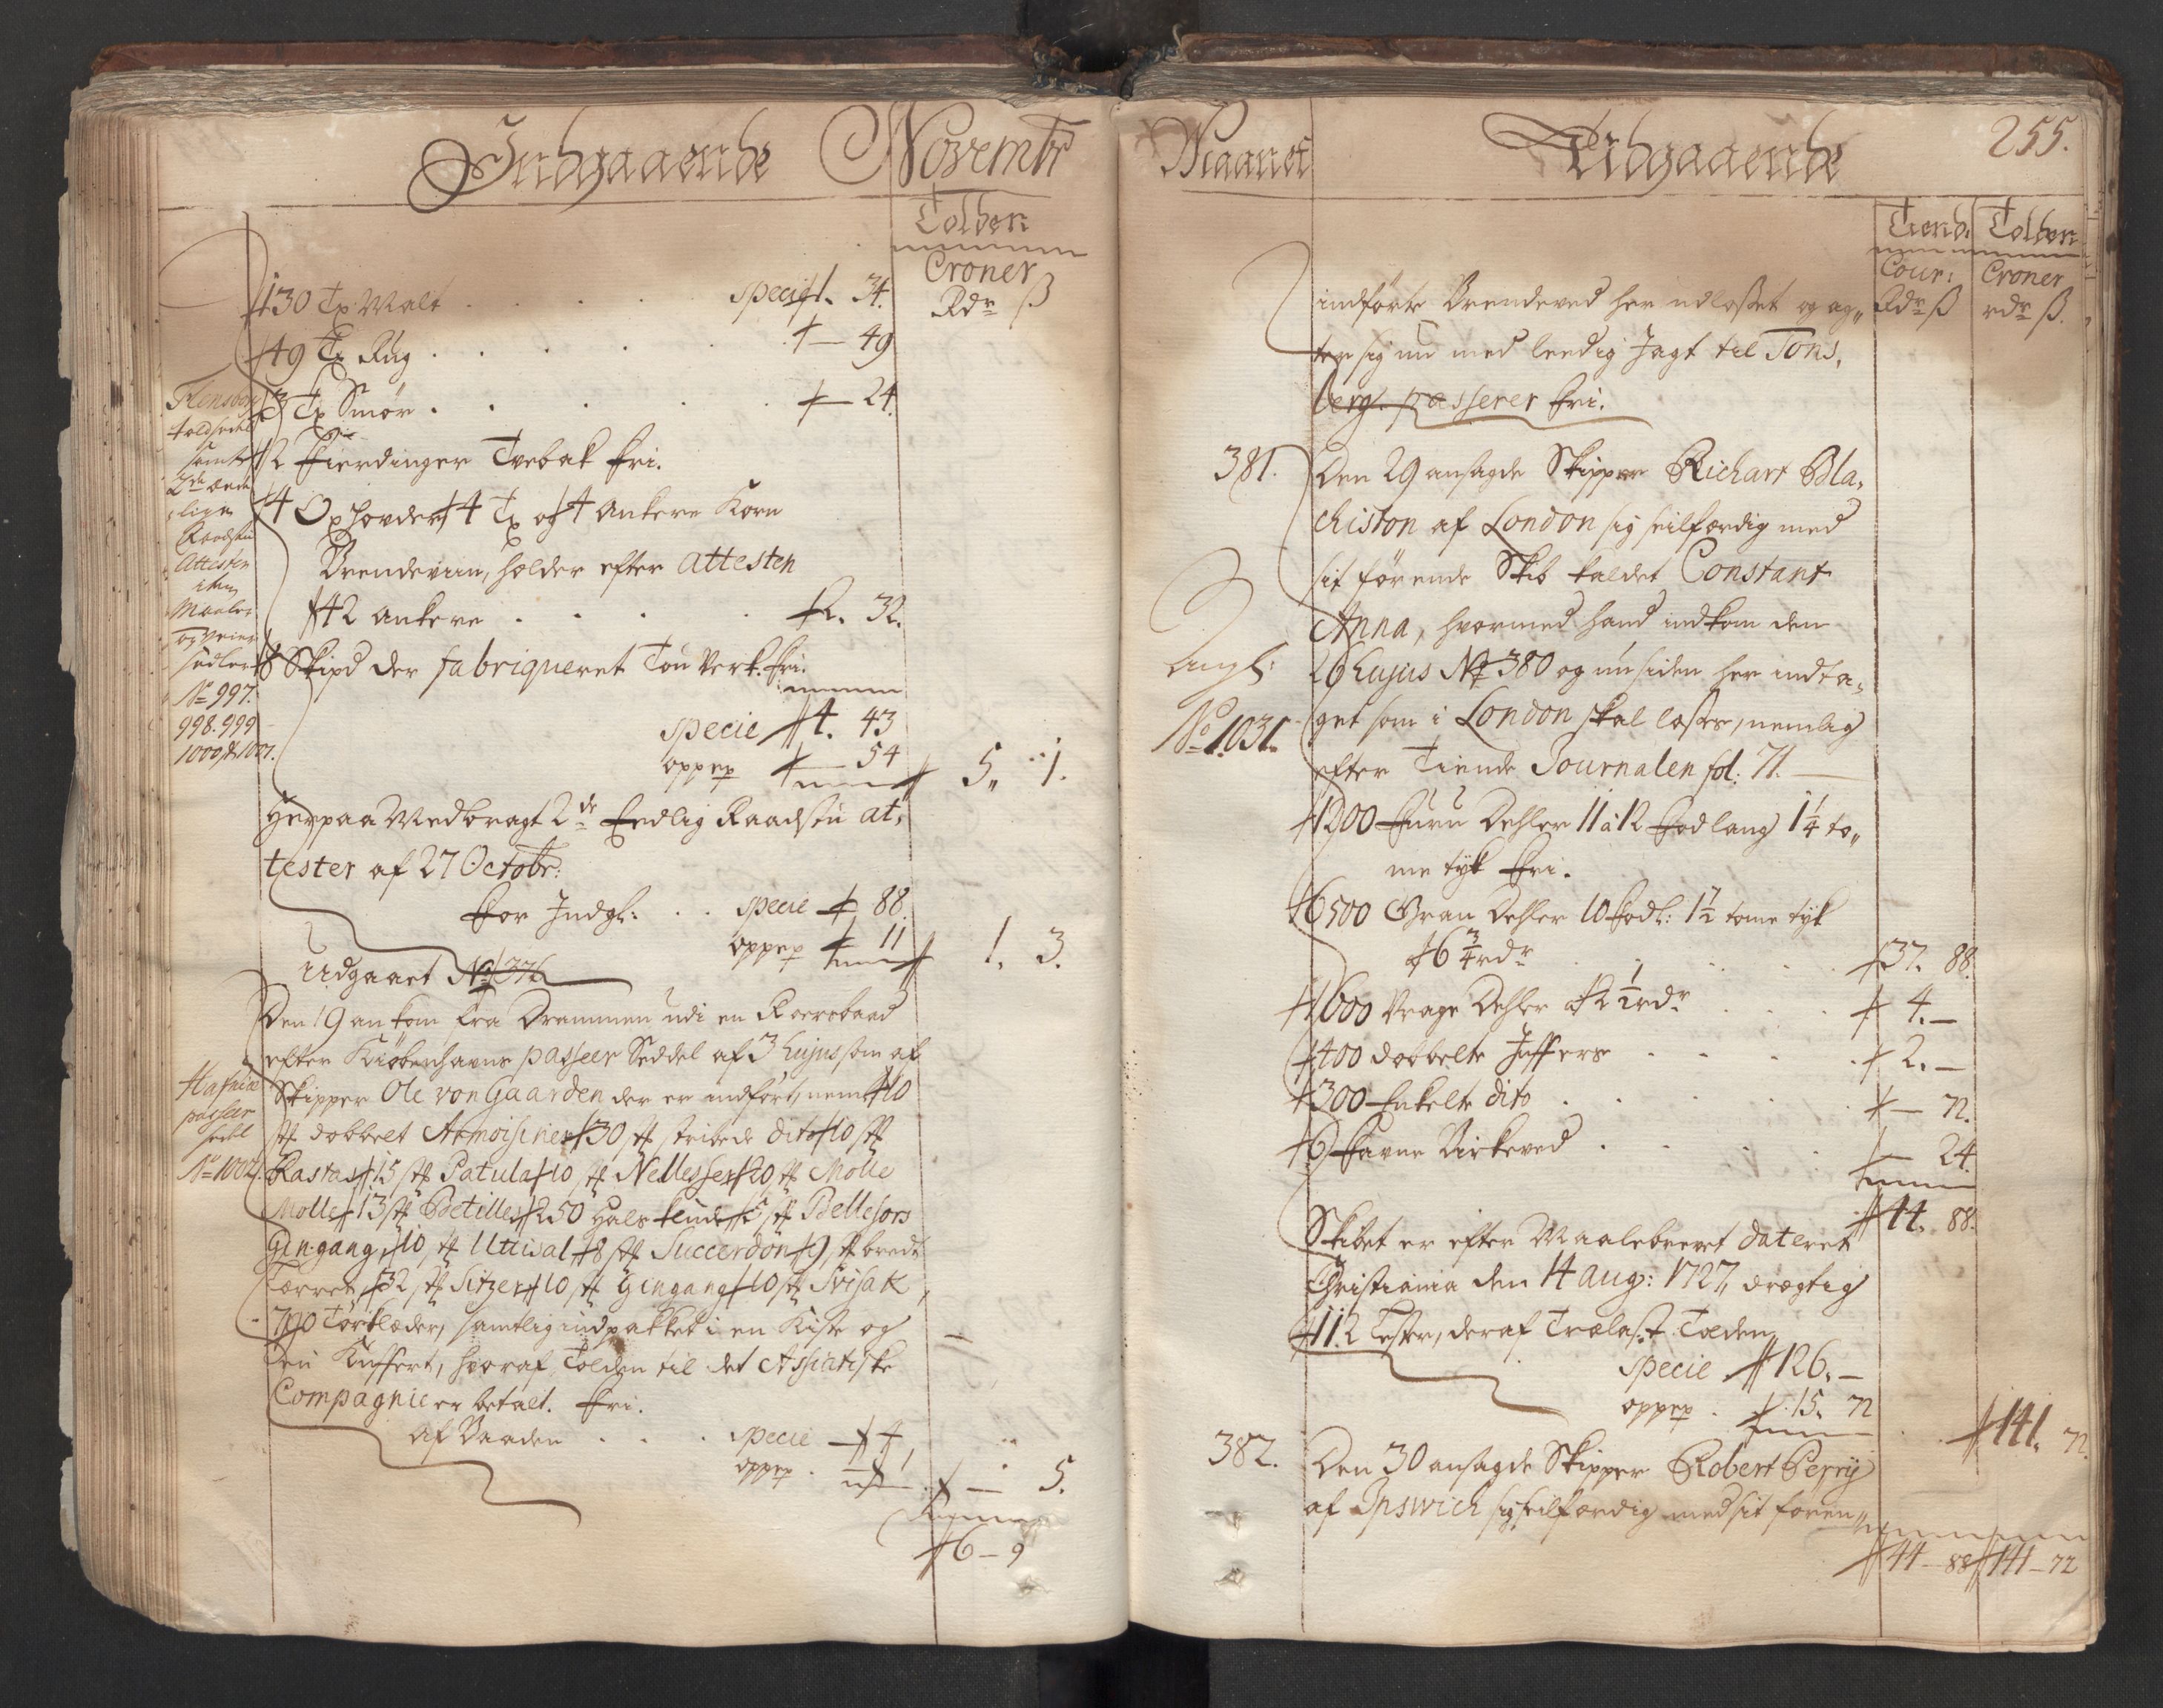 Indgaaende Novembr
Tolden
Croner
Rdr ß
130 Tr Malt . . . . specie 1. 34.
49 Tr Rug . . . . . — 49
3 Tr Smør . . . . . — 24.
2 Fierdinger Tvebak fri.
4 Oxhovder 4 Tr og 4 Ankere Korn
Brendeviin, holder efter Attesten
42 Ankere . . . . 2. 32.
8 Skipd der fabriqueret Tou Verk. fri.
specie 4. 43
oppep — 54
5. 1.
Flensborg
toldsedel
samt
2de
Raadstu
Attester
item
Maaler
og Veier
sedler
No 997.
998. 999
1000 & 1001.
Herpaa Medbragt 2de Eedlig Raadstu at,
tester af 27 Octobr:
For Indgl: . . specie 88
oppep 11
1. 3.
Udgaaet No 376
Den 19 ankom fra Drammen udi en Roerbaad
efter Kiøbenhavns passeer Seddel af 3 hujus som af
Skipper Ole von Gaarden der er indført, neml 10
st dobbelt Armoisiner 30 st stribede dito 10 st
Rastas 15 st Patula 10 st Nellesser 20 st Molle
Molle 13 st Betilles 250 Hals klude 5 st Bellesors
Gingang, 10 st Uttisal 8 st Succerdon 9 st brede
Tærret 32 st Sitzer 10 st Gingang 10 st Svisak,
790 Tørklæder, samtlig indpakket i en Kiste og
Kuffert, hvoraf Tolden til det Assiatiske
Compagnie er betalt. fri.
Hafniæ
passeer
sedl
No 1002.
af Baaden . . . specie 4
oppep . 1
— 5.
6 — 9
Maanet Udgaaende 255.
Tiend. Tolden
Cour: Croner
Rdr ß rdr ß.
indførte Brendeved her udlosset og ag„
ter sig nu med leedig Jagt til Tons,
berg. passerer fri.
381. Den 29 ansagde Skipper Richart Bla,
chiston af London sig seilferdig med
sit førende Skib kaldet Constant
Anna, hvormed hand indkom den
26 hujus No 380 og nu siden her indta„
get som i London skal losses, nemlig
efter Tiende Journalen fol: 71. —
Angl:
No 1031.
1200 Furu Dehler 11 à 12 Fod lang 1¼ to„
me tyk fri.
6500 Gran Dehler 10 Fodl: 1½ tome tyk
a 6¾ rdr . . . . 37. 88.
1600 Vrage Dehler a 2½ rdr . . . 4. —
400 dobbelte Juffers . . . . 2. —
300 Enkelte dito . . . . . — 72.
6 Favne Birkeved . . . . — 24
44. 88.
Skibet er efter Maalebrevet dateret
Christiania den 14 Aug: 1727, drægtig
112 Lester, deraf Trælast Tolden
specie 126. —
oppep . 15. 72
141. 72.
382. Den 30 ansagde Skipper Robert Perry
af Ipswich sig seilferdig med sit føren„
44 — 88 141 — 72